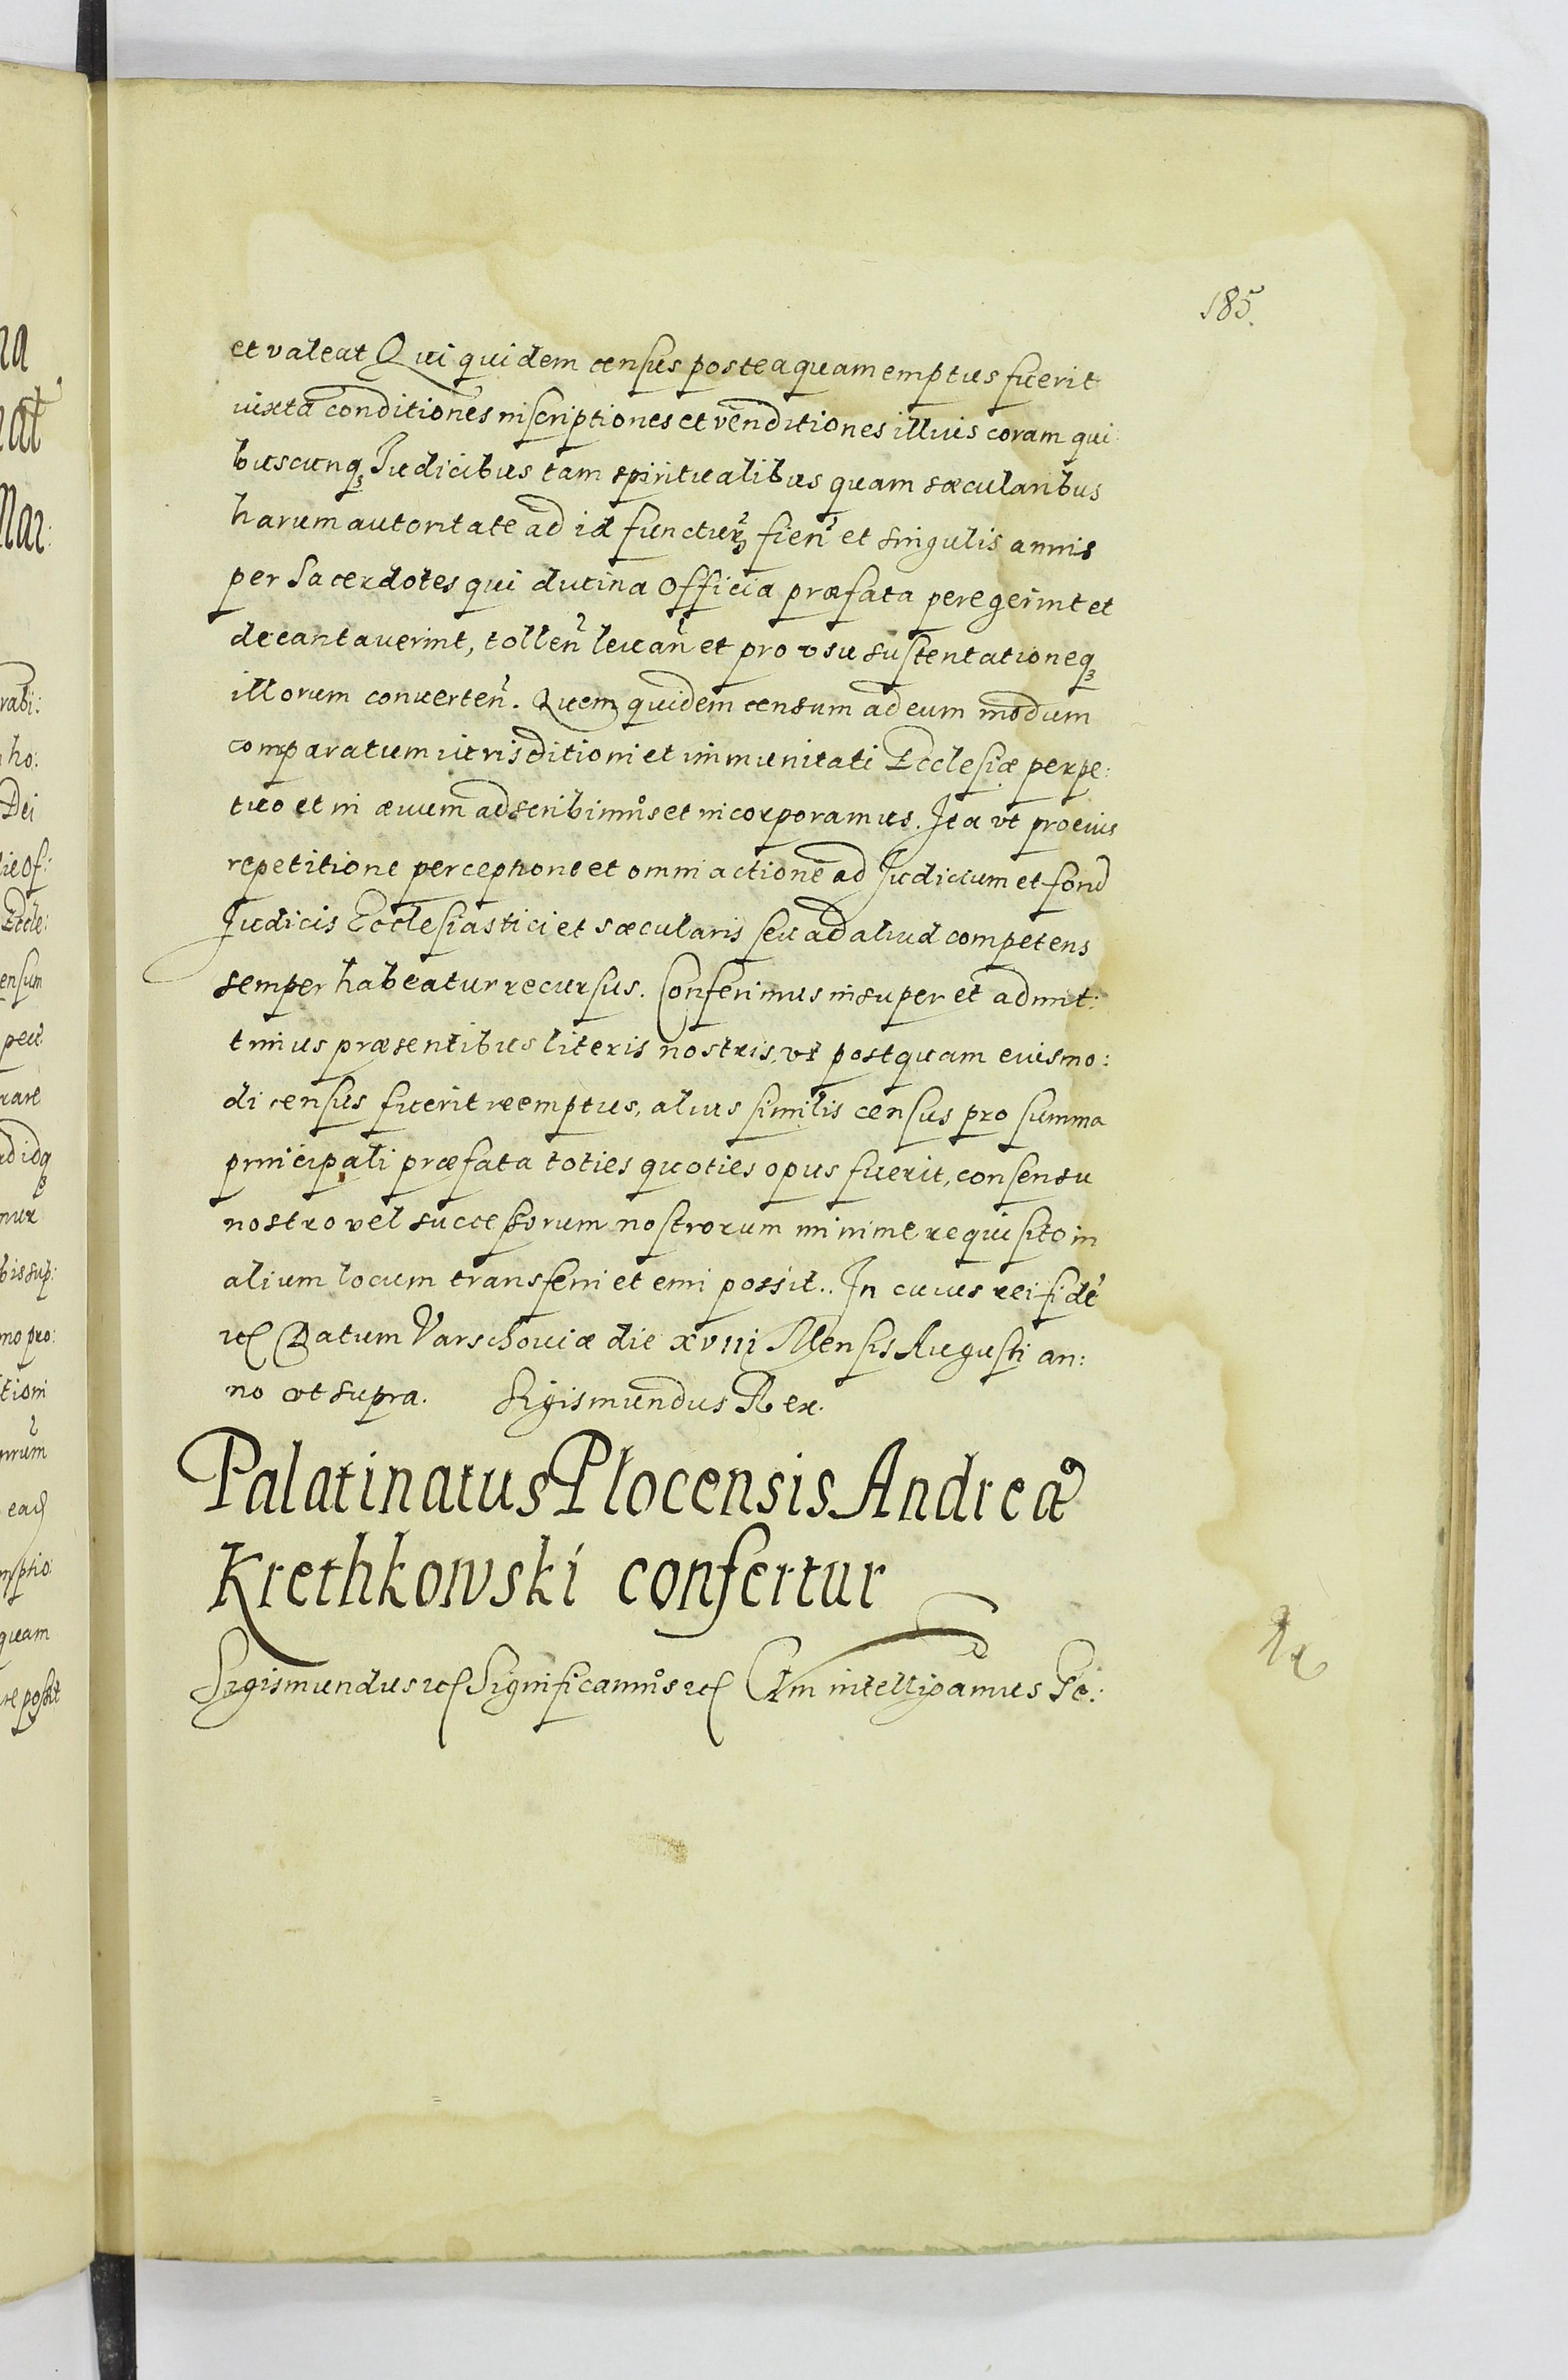 185.
et valeat Qui quidem census posteaquam emptus fuerit
iuxta conditiones inscriptiones et venditiones illius coram qui
buscunqꝫ Iudicibus tam spiritualibus quam sæcularibus
harum autoritate ad id functur̃ fien̾ et singulis annis
per Sacerdotes qui diutina Officia præfata peregerint et
decantauerint, tollen̾ leuan̾ et pro vsu sustentationeqꝫ
illorum conuerten̾. Quem quidem censum ad eum modum
comparatum iurisditioni et immunitati Ecclesiæ perpe:
tuo et in æuum adscribimus et incorporamus. Ita vt pro eius
repetitione perceptione et omni actione ad Iudicium et forũ
Iudicis Ecclesiastici et sæcularis seu ad aliud competens
semper habeatur recursus. Conferimus insuper et admit:
timus præsentibus literis nostris, vt postquam euismo:
di census fuerit reemptus, alius similis census pro summa
principali præfata toties quoties opus fuerit, consensu
nostro vel successorum nostrorum minime requisito in
alium locum transferri et emi possit.. In cuius rei fidẽ
etc Datum Varschouiæ die xviii Mensis Augusti an:
no vt supra. Sigismundus Rex.
Palatinatus Plocensis Andreæ
Krethkowski confertur
Sigismundus etc Significamus etc Cum intelligamus Ge: